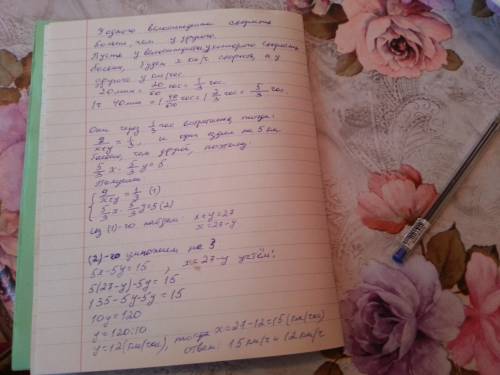 У одного велосипедиста скорость
больше, чем у другого.
Пусть у велосипедиста, у которого скорость
больше, будет x км/ч скорость, а у
другого y км/час.
20 мин = 20/60 час = 1/3 час.
1ч 40мин = 1 40/60 час = 1 2/3 час = 5/3 час.
Они через 1/3 час встретятся, тогда:
9/x+y = 1/3, и один едет на 5 км
больше, чем другой, поэтому
5/3 x - 5/3 y = 5
Получаем
{ 9/x+y = 1/3 (1)
5/3 x - 5/3 y = 5 (2)
из (1)-го найдем: x+y=27
x=27-y
(2)-го умножем на 3
5x-5y=15, x=27-y учтём:
5(27-y)-5y=15
135-5y-5y=15
10y=120
y=120:10
y=12(км/час), тогда x=27-12=15(км/час)
ответ: 15 км/ч и 12 км/ч